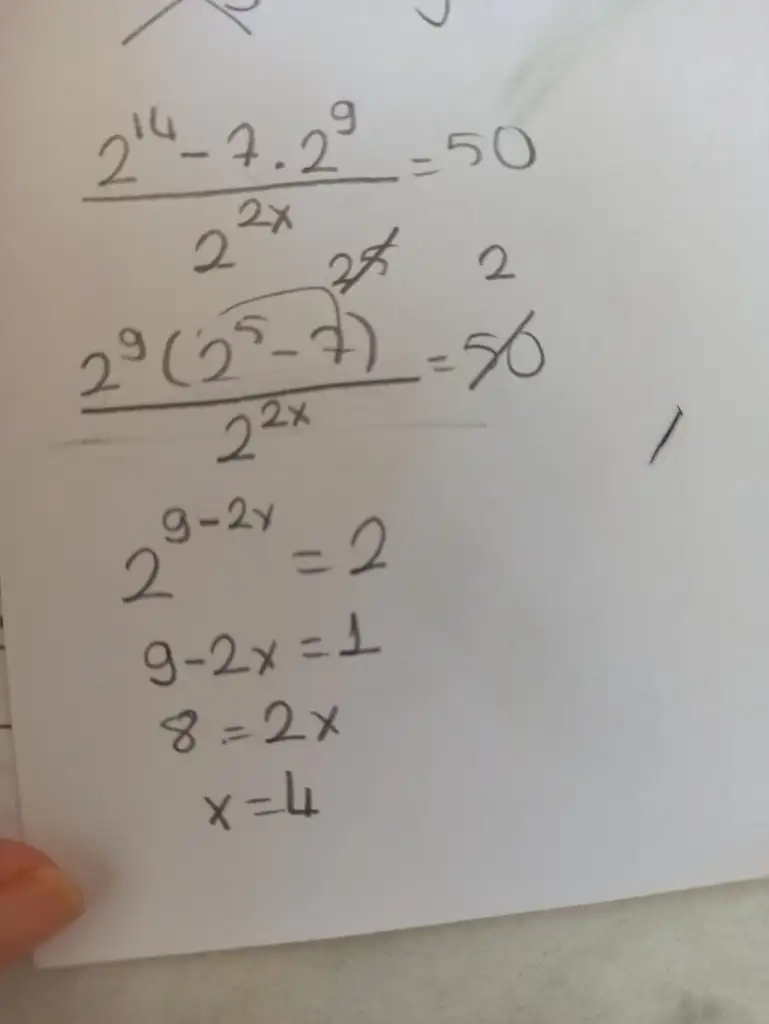 2^14 - 7 . 2^9 = 50
2^2x
25 2
2^9 (2^5 - 7) = 50
2^2x
2^9-2x = 2
9-2x = 1
8 = 2x
x = 4